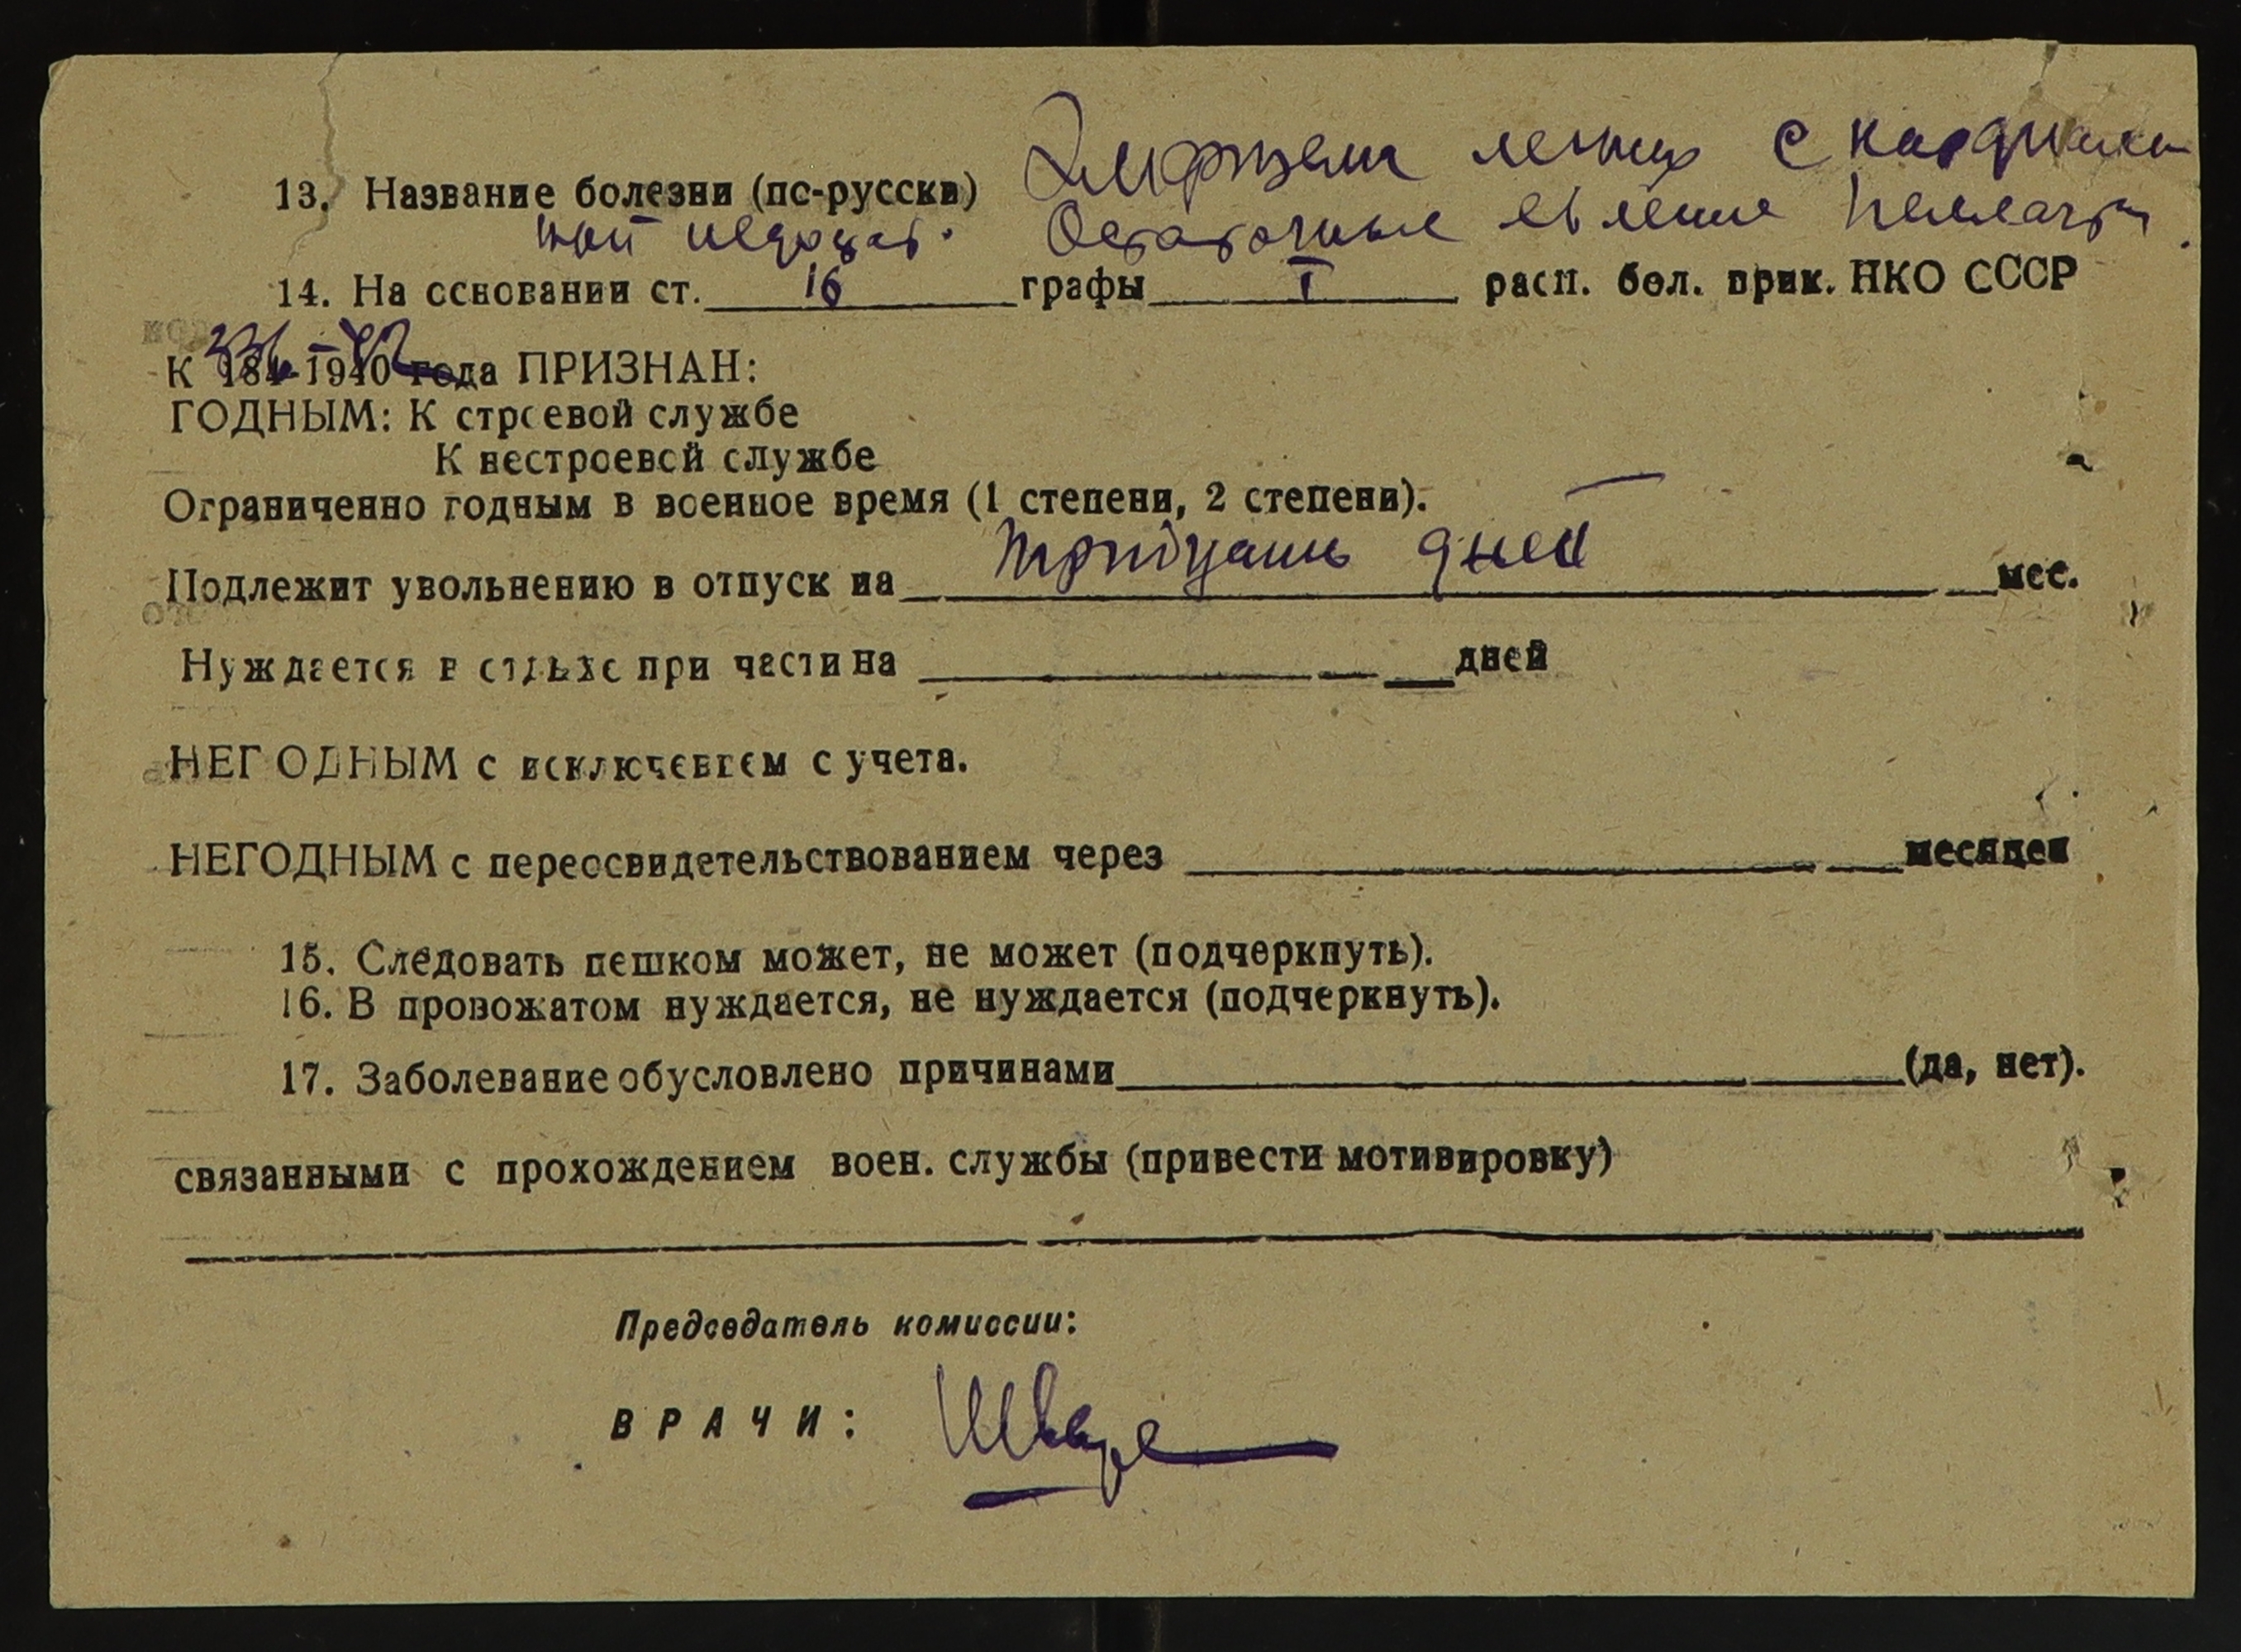 13. Название болезни (по-русски) Эмфизема легких с кардиаль
ной недостат. Остаточные явление пеллагры.
14. На основании ст. 16 графы I расп. бол. прик. НКО СССР
К 336-42 184-1940 года ПРИЗНАН:
ГОДНЫМ: К строевой службе
К нестроевой службе
Ограниченно годным в военное время (1 степени, 2 степени).
Подлежит увольнению в отпуск на тридцать дней мес.
Нуждается в отдыхе при части на дней
НЕГОДНЫМ с исключением с учета.
НЕГОДНЫМ с переосвидетельствованием через месяцев
15. Следовать пешком может, не может (подчеркнуть).
16. В провожатом нуждается, не нуждается (подчеркнуть).
17. Заболевание обусловлено причинами (да, нет).
связанными с прохождением воен. службы (привести мотивировку)
Председатель комиссии:
ВРАЧИ: